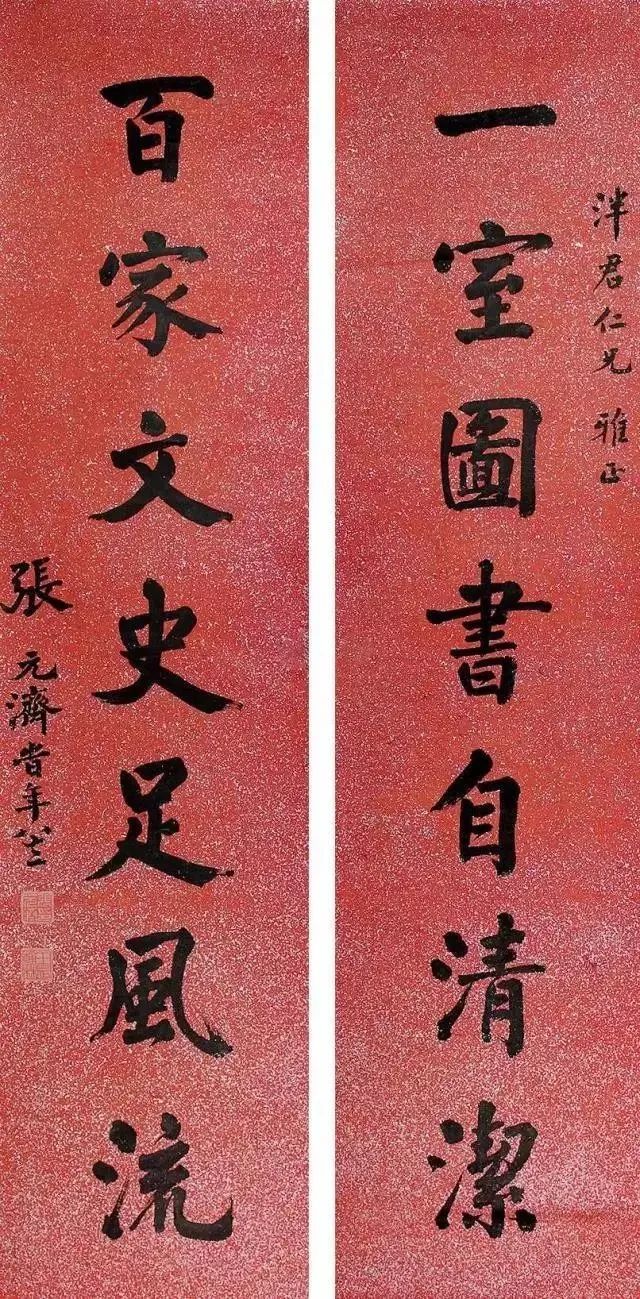 泮君仁兄 雅正
一室圖書自清潔
百家文史足風流
張元濟 時年八十二